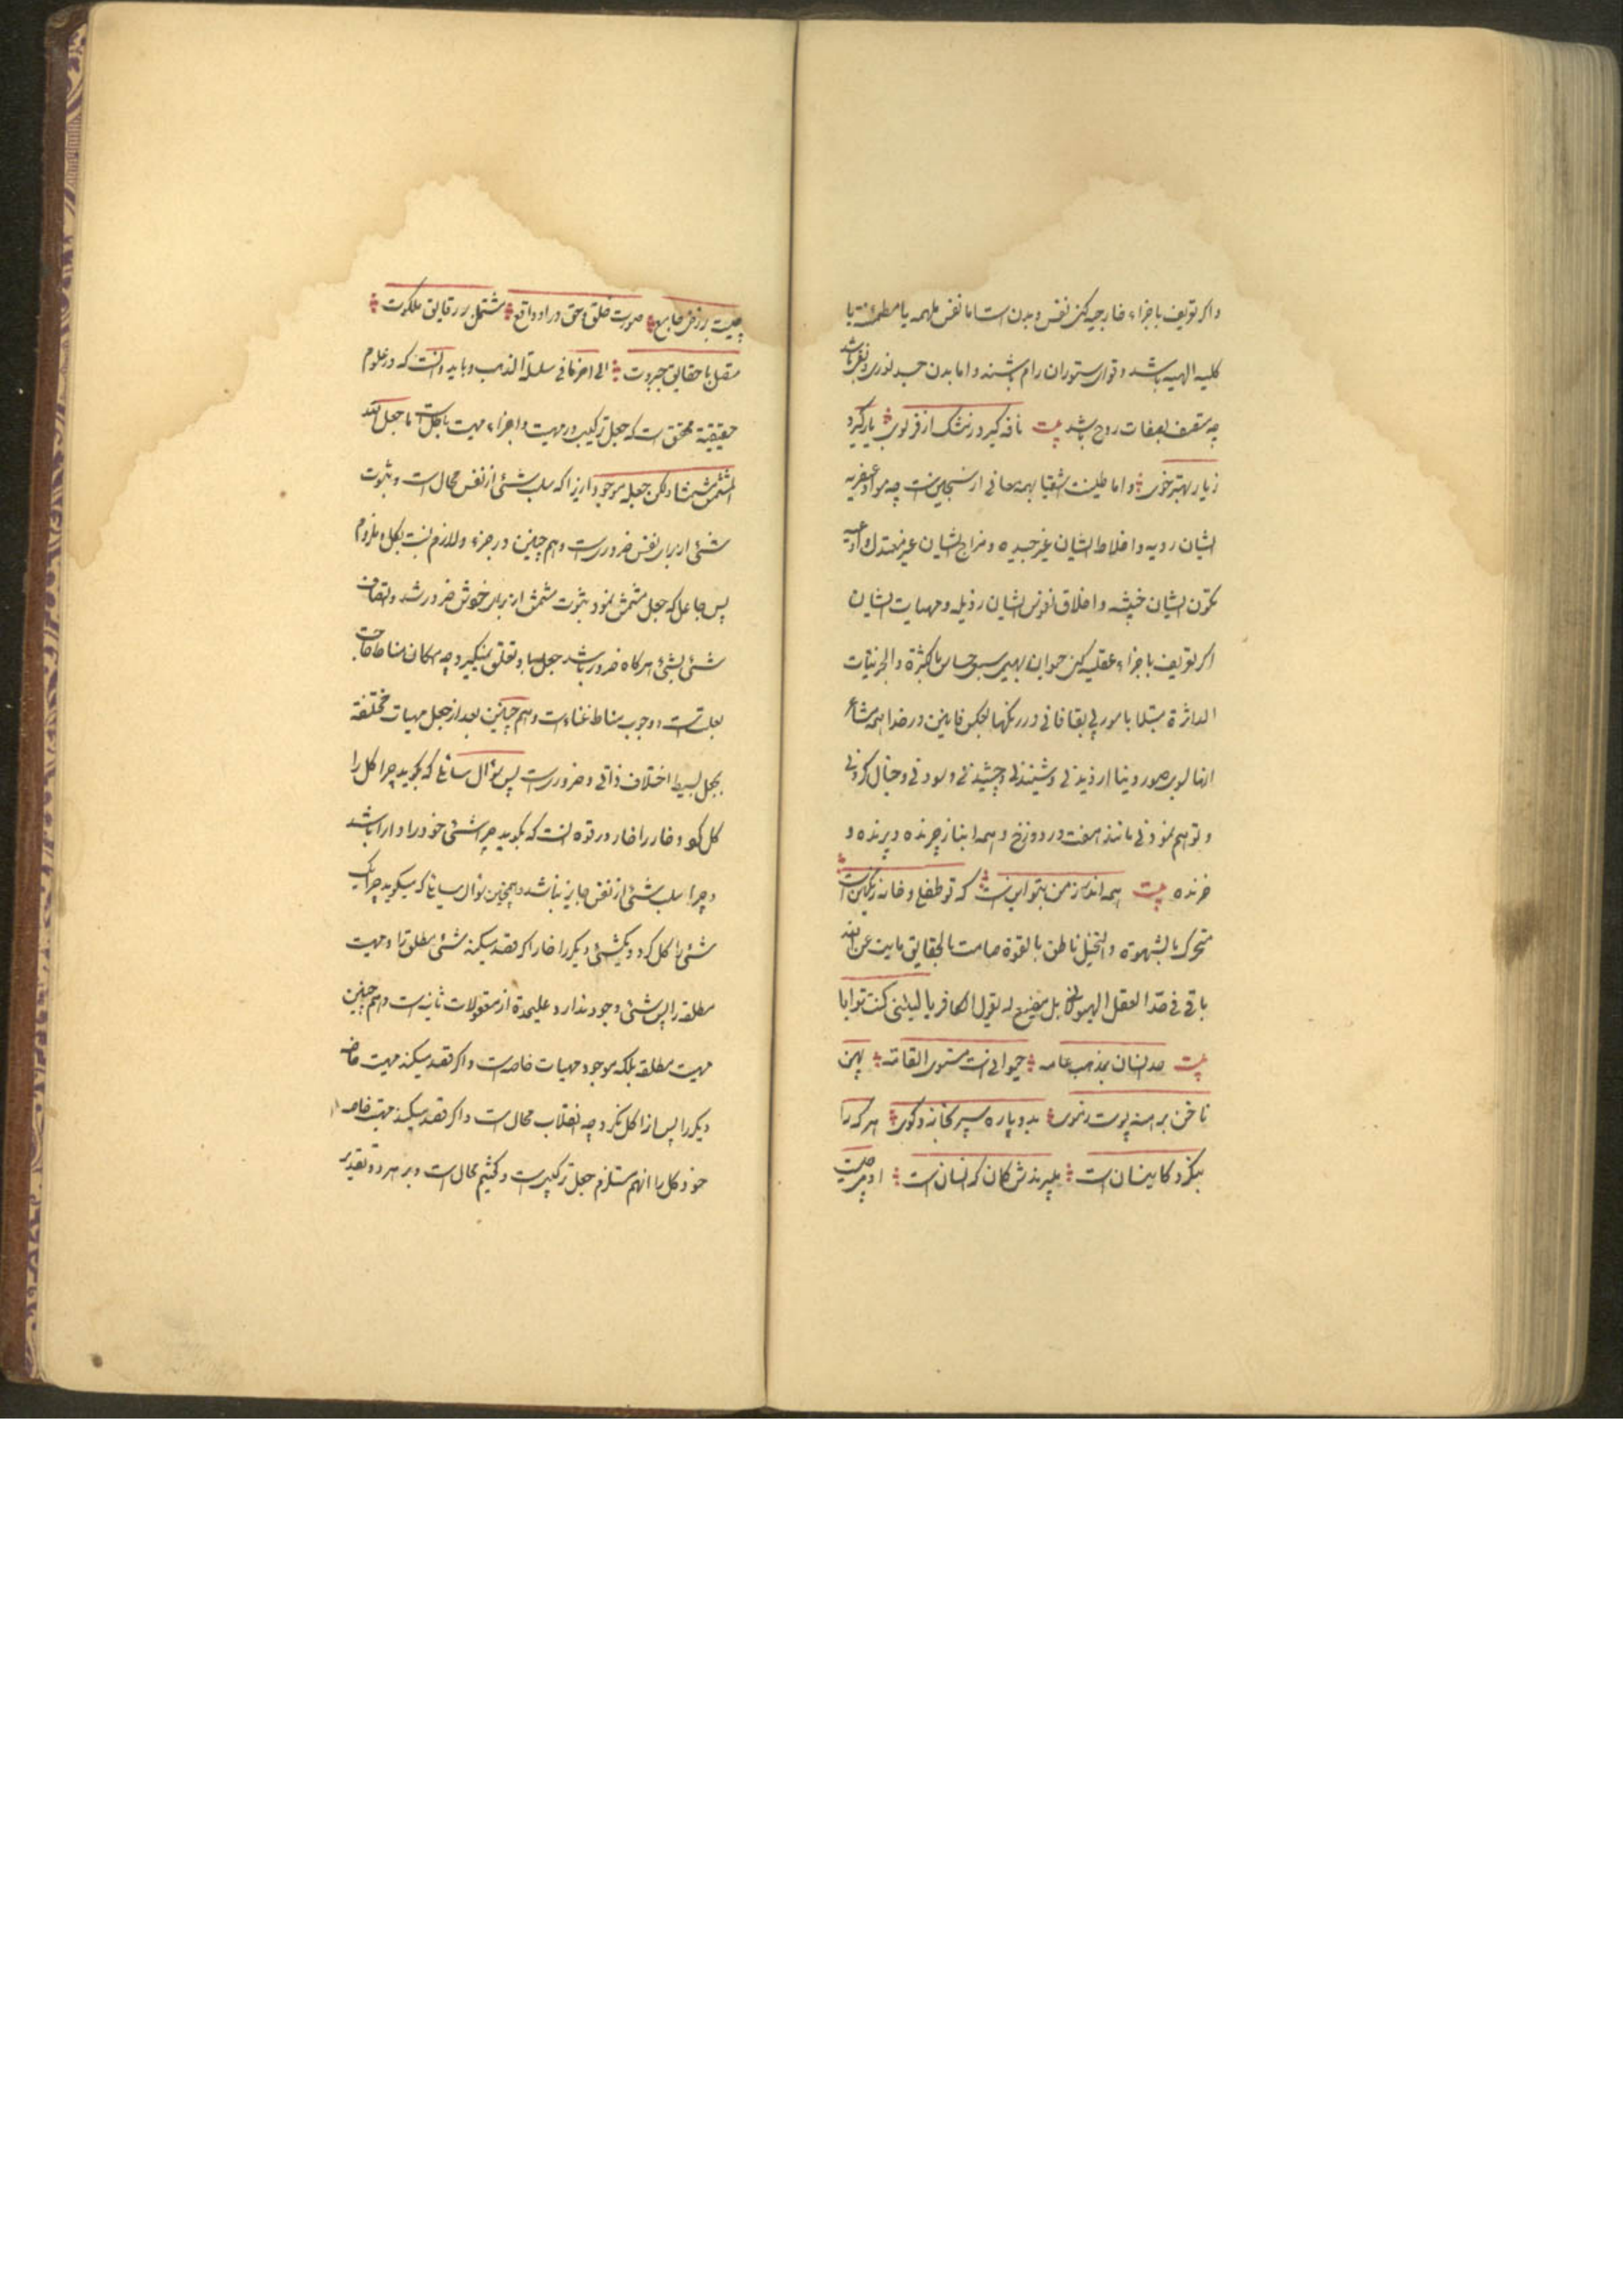 واکر تعریف باجزاء خارجیه کنی نفس و بدن است اما نفس ملهمه یا مطمئنه یا
کلیه الهیه باشد و قوای ستوران رام باشند و اما بدن جسد نوری
چه متصف بصفات روح باشد بیت نافه کیرد ز مشک از فر بوی یار کیرد
ز یار بهتر خوی و اما طینت اشقیا بهمه معانی از سجین است چه مواد عنصریه
ایشان ردیه و اخلاط ایشان غیر جیده و مزاج ایشان غیر معتدل
تکون ایشان خبیثه و اخلاق نفوس ایشان رذیله و مهیات ایشان
اکر تعریف باجزاء عقلیه کنی حیوان بهیمی سبعی حساس بالکثرة والجزئیات
الداثرة مبتلا بامور بی بقا فانی در رنکها لیکن فانین در خدا همه مشاعر
انها بسوی صور دنیا از دیدنی و شنیدنی و چشیدنی و بودنی و خیال کردنی
و توهم نمودنی مانند هفت در دوزخ و همه اینها از چرنده و پرنده و
خزنده بیت همه اندرز من بتو این است که تو طفلی و خانه رنکین است
متحرک بالشهوة والتخیل ناطق بالقوة صامت بالحقایق مایت عن الله
باقی فی هذا العقل الهیولانی بل مضیع له یقول الکافر یا لیتنی کنت ترابا
بیت حد انسان بمذهب عامه حیوانی است مستوی القامه پهن
ناخن برهنه پوست ز موی بدو پا ره سپر بخانه و کوی هر که را
بنکرند کاینسان است میبرندش کمان که انسان است آدمی چیست
چیست برزخی جامع صورت خلق و حق در او واقع مشتمل بر رقایق ملکوت
متصل با حقایق جبروت الی اخر ما فی سلسلة الذهب و باید دانست که در علوم
حقیقیه محقق است که جعل ترکیب در مهیت و اجزاء مهیت باطل است ما جعل الله
المشمش مشمشا ولکن جعله موجودا زیرا که سلب شئی از نفس محال است و ثبوت
شئی از برای نفس ضروری است و هم چنین در جزء و لازم نسبت بکل و ملزوم
پس جاعل که جعل مشمش نمود ثبوت مشمش از برای خودش ضرور شد و اتصاف
شئی بشئی هر کاه ضرور باشد جعل باو تعلق نمیکیرد چه امکان مناط حاجت
بعلت است و وجوب مناط غناء است و هم چنین بعد از جعل مهیات مختلفه
بجعل بسیط اختلاف ذاتی و ضروری است پس سؤال سائل که بکوید چرا کل را
کل کرد و خار را خار در قوه انست که بکوید چرا شئی خود را دارا باشد
و چرا سلب شئی از نفس جایز نباشد و همچنین سؤال سائل که میکوید چرا یک
شئی را کل کرد و یکشئی دیکر را خار اکر قصد میکند شئی مطلق را و مهیت
مطلقه را پس شئی وجود ندارد علیحدة از معقولات ثانیه است و هم چنین
مهیت مطلقه بلکه موجود مهیات خاصه است و اکر قصد میکند مهیت خاصه
دیکر را پس از را کل نکرد چه انقلاب محال است و اکر قصد میکند مهیت خاصه
خود کل را انهم مستلزم جعل ترکیبی است و کفتیم محال است و بر هر دو تقدیر